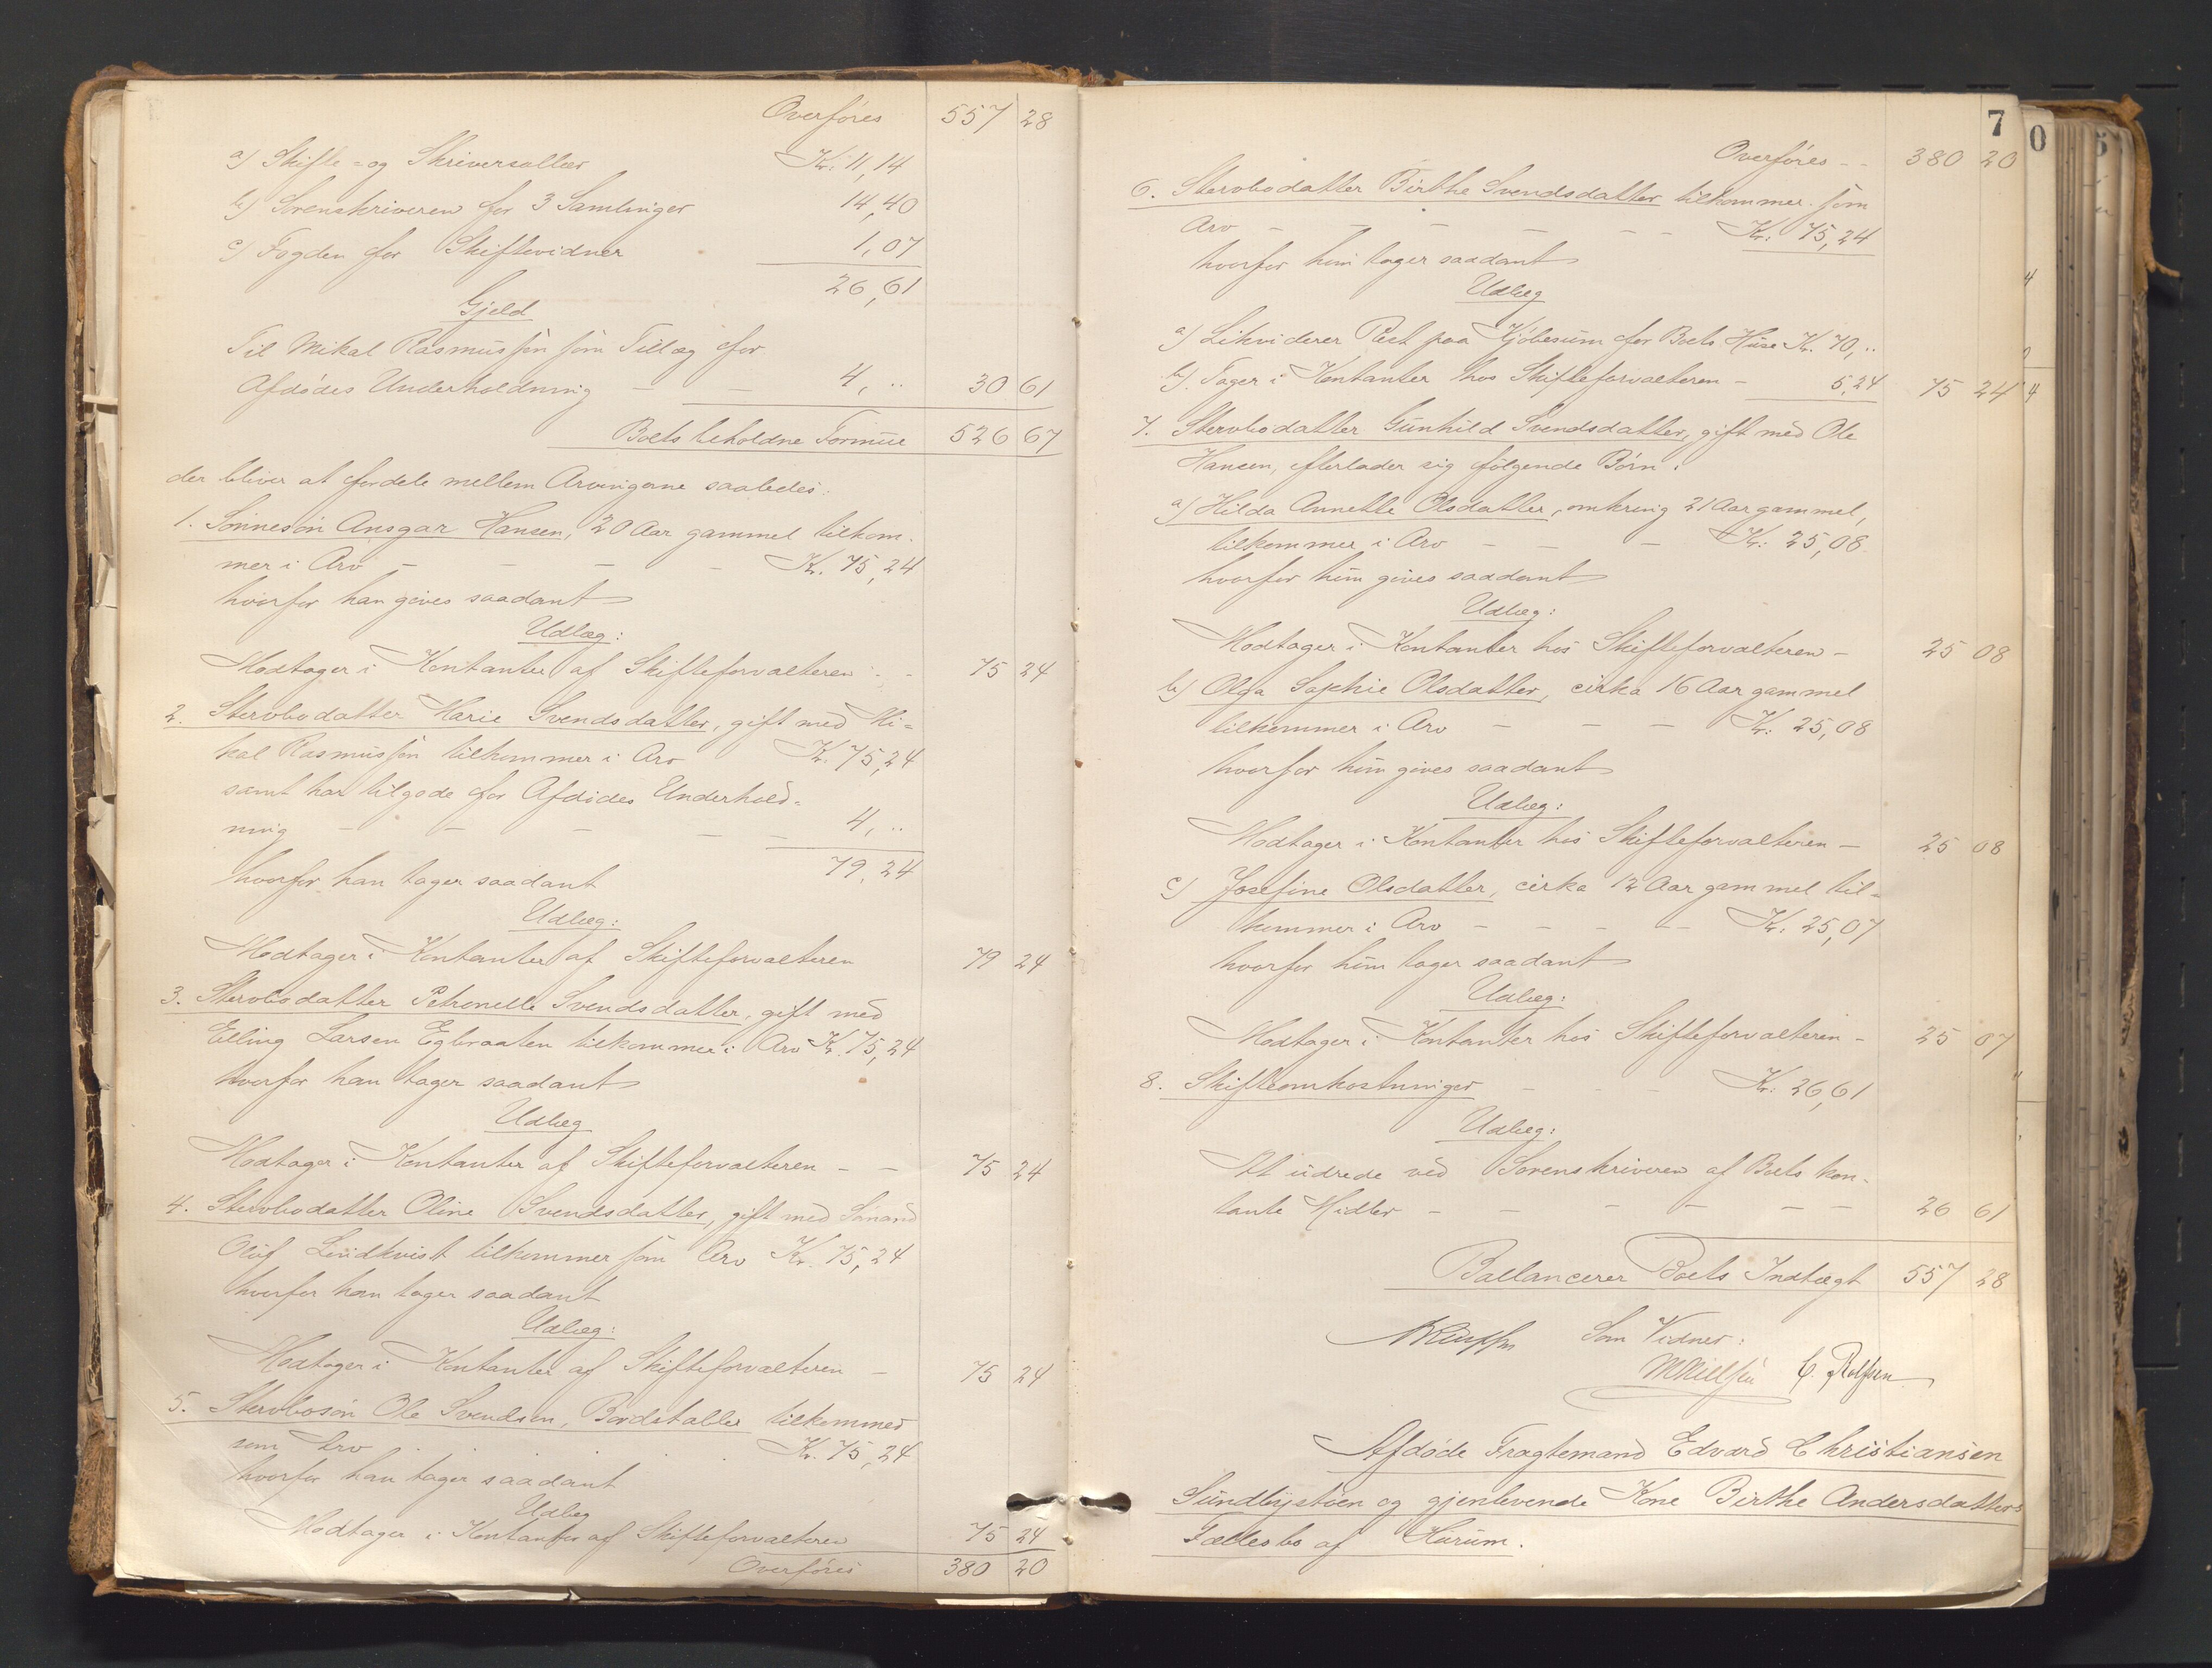 Overføres 557 28
a) Skifte- og Skriversallær Kr. 11,14
b) Sorenskriveren for 3 Samlinger 14,40
c) Fogden for Skiftevidner 1,07
26,61
Gjeld
Til Mikal Rasmussen som Tillæg for
Afdødes Underholdning — — 4, .. 30 61
Boets beholdne Formue 526 67
der bliver at fordele mellem Arvingerne saaledes:
1. Sønnesøn Ansgar Hansen, 20 Aar gammel tilkom-
mer i Arv — — — — Kr. 75,24
hvorfor han gives saadant
Udlæg:
Modtager i Kontanter af Skifteforvalteren - - 75 24
2. Stervbodatter Marie Svendsdatter, gift med Mi-
kal Rasmussen tilkommer i Arv Kr. 75,24
samt har tilgode for Afdødes Underhold-
ning — — — — — 4, ..
79,24
hvorfor han tager saadant
Udlæg:
Modtager i Kontanter af Skifteforvalteren 79 24
3. Stervbodatter Petronelle Svendsdatter, gift med
Elling Larsen Egbraaten tilkommer i Arv Kr. 75,24
hvorfor han tager saadant
Udlæg
Modtager i Kontanter af Skifteforvalteren - — 75 24
4. Stervbodatter Oline Svendsdatter, gift med
Oluf Lindkvist tilkommer som Arv Kr. 75,24
hvorfor han tager saadant
Udlæg:
Modtager i Kontanter af Skifteforvalteren — 75 24
5. Stervbosøn Ole Svendsen, tilkommer
som Arv . . . . Kr. 75,24
hvorfor han tager saadant
Udlæg
Modtager i Kontanter af Skifteforvalteren 75 24
Overføres 380 20
7
Overføres - - 380 20
6. Stervbodatter Birthe Svendsdatter tilkommer som
Arv — — — — - - Kr: 75,24
hvorfor hun tager saadant
Udlæg
a) Likviderer Rest paa Kjøbesum for Boets Huse Kr. 70, ..
b) Tager i Kontanter hos Skifteforvalteren - 5,24 75 24
7. Stervbodatter Gunhild Svendsdatter, gift med Ole
Hansen, efterlader sig følgende Børn:
a) Hilda Annette Olsdatter, omkring 21 Aar gammel,
tilkommer i Arv — — — Kr: 25,08
hvorfor hun gives saadant
Udlæg:
Modtager i Kontanter hos Skifteforvalteren - 25 08
b) Olga Sophie Olsdatter, cirka 16 Aar gammel
tilkommer i Arv — — — Kr: 25,08
hvorfor hun gives saadant
Udlæg:
Modtager i Kontanter hos Skifteforvalteren — 25 08
c) Josefine Olsdatter, cirka 12 Aar gammel til-
kommer i Arv - - - - - Kr: 25,07
hvorfor hun tager saadant
Udlæg:
Modtager i Kontanter hos Skifteforvalteren - 25 07
8. Skifteomkostninger - - - Kr: 26,61
Udlæg:
At udrede ved Sorenskriveren af Boets kon-
tante Midler — — — — — — 26 61
Ballancerer Boets Indtægt 557 28
Som Vidner:
Afdøde Fragtemand Edvard Christiansen
Sundbystøen og gjenlevende Kone Birthe Andersdatters
Fællesbo af Hurum.